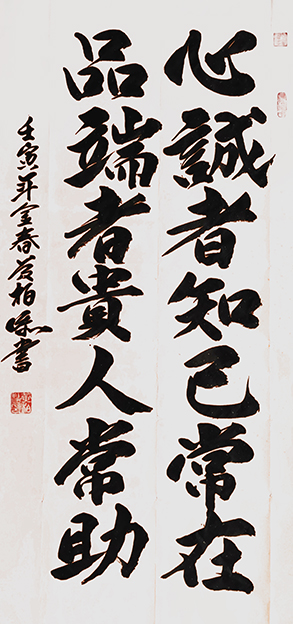 心誠者知己常在
品端者貴人常助
壬寅年春柏書